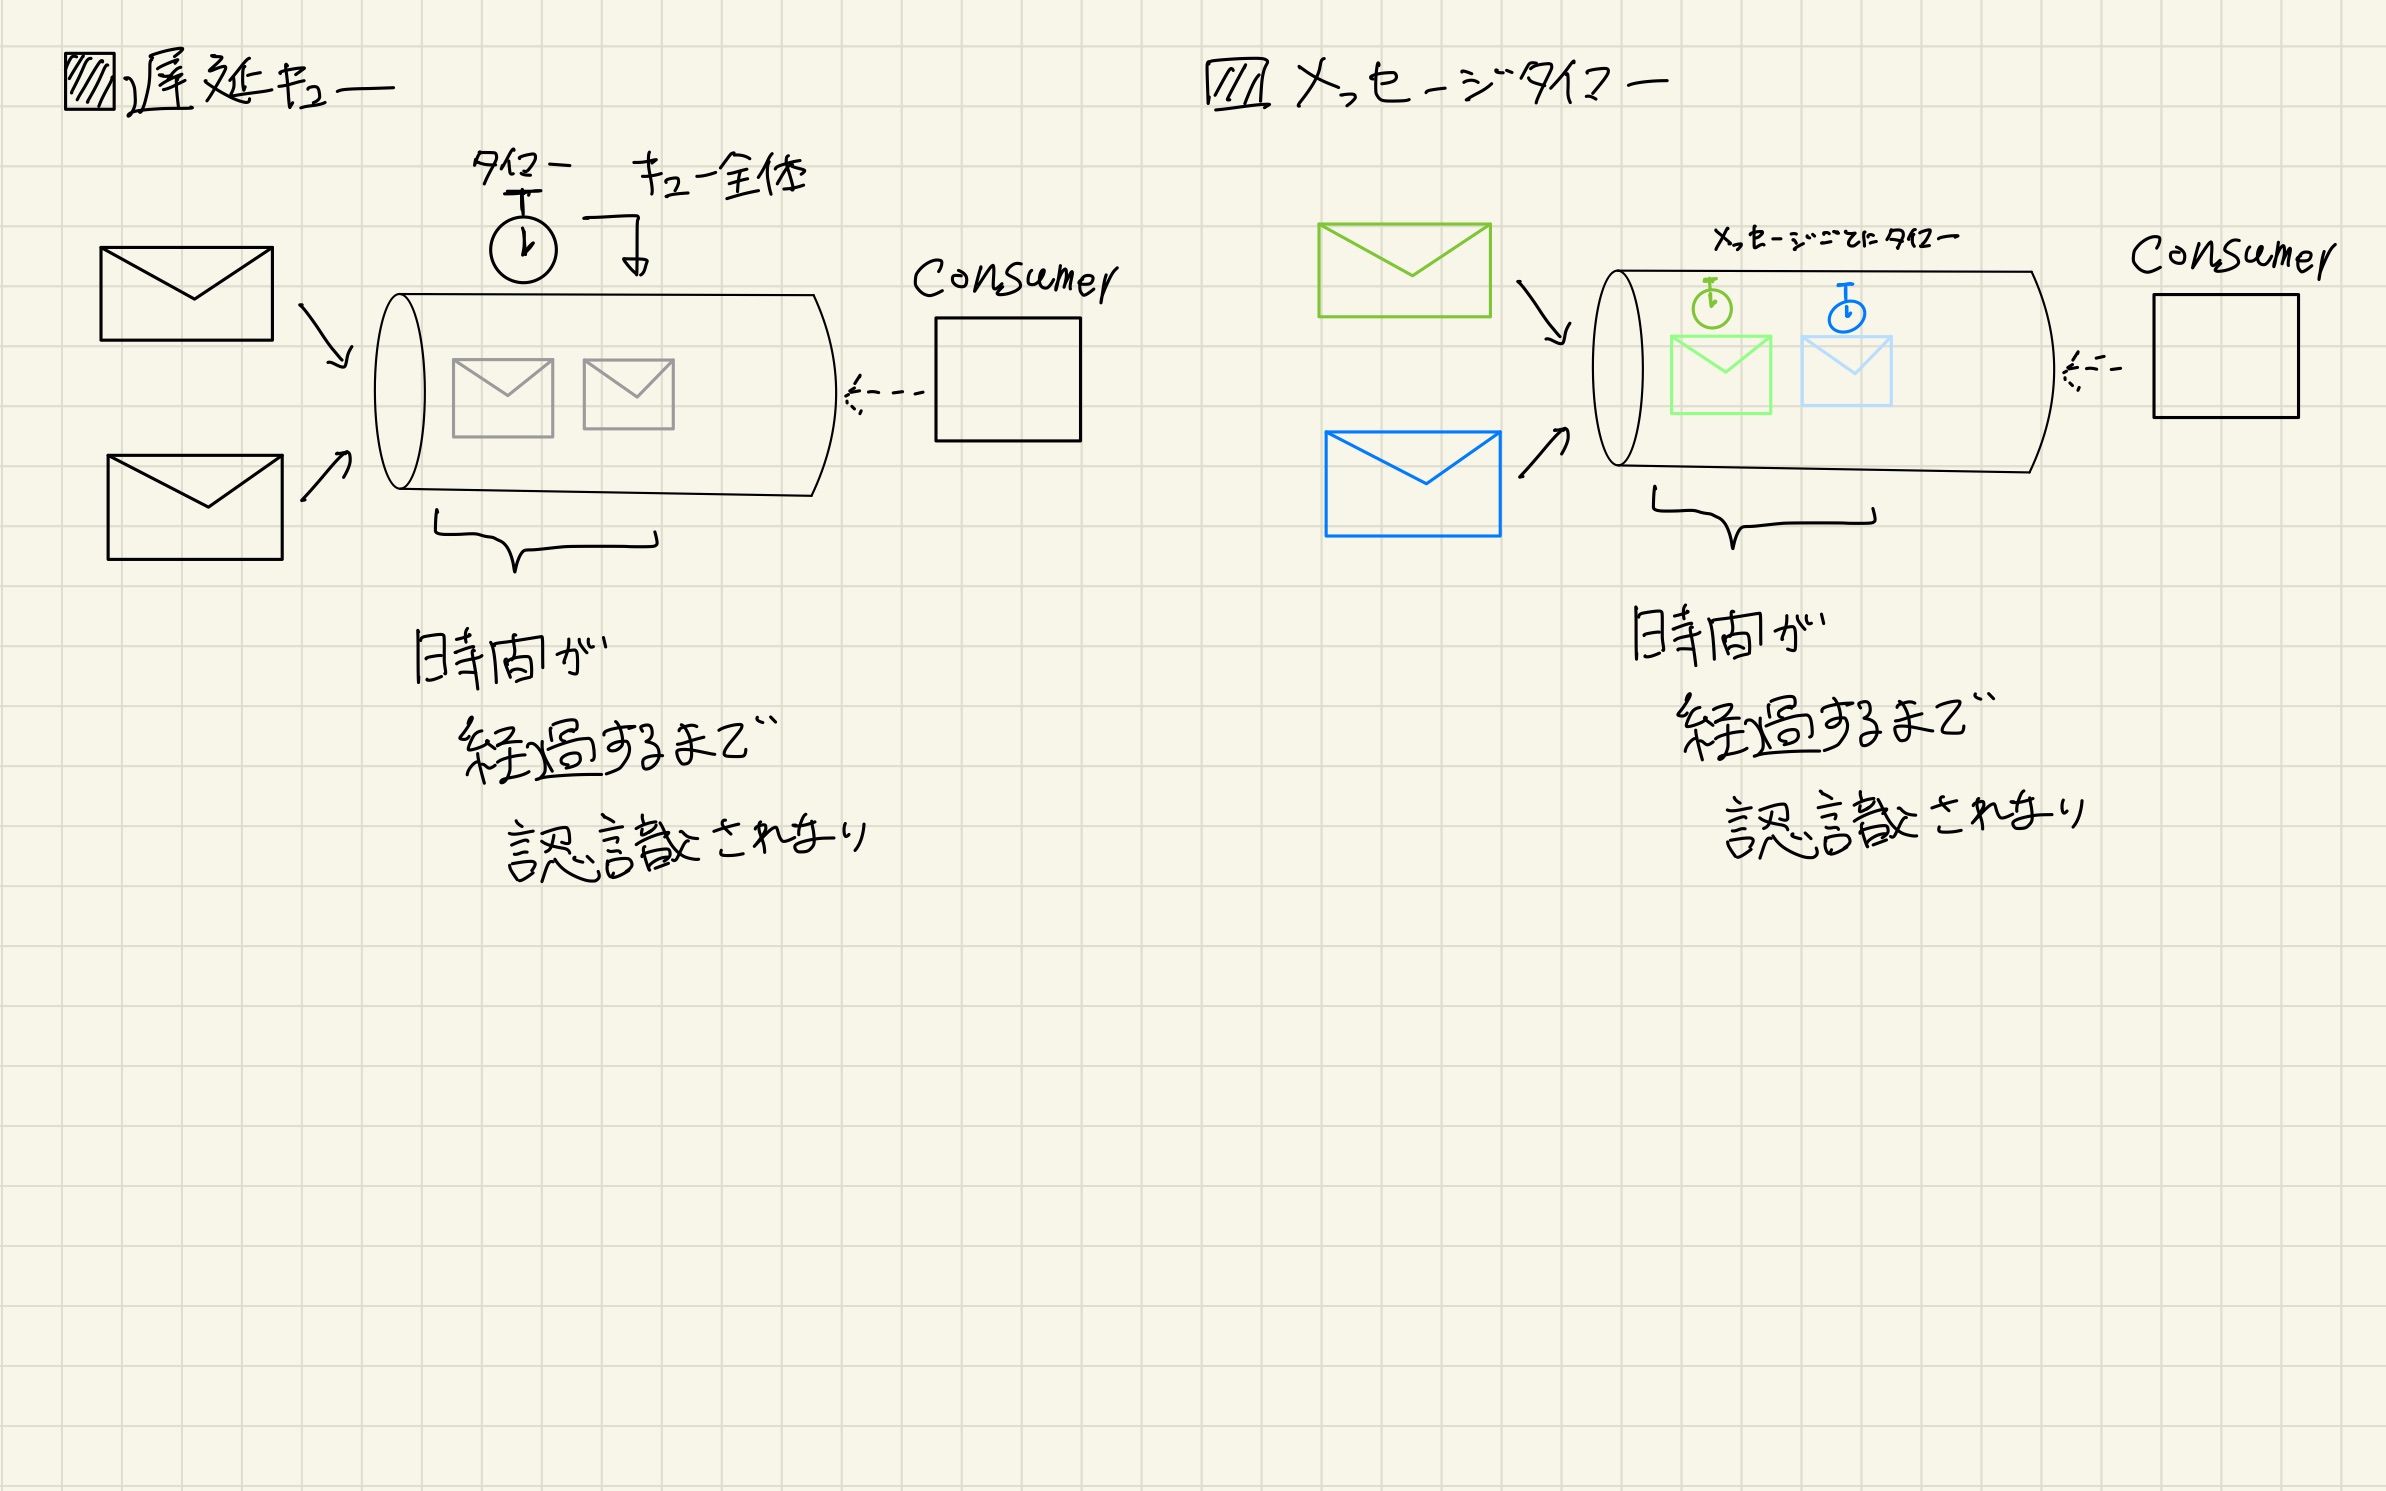 遅延キュー
タイマー キュー全体
Consumer
時間が
経過するまで
認識されない
メッセージタイマー
メッセージごとにタイマー
Consumer
時間が
経過するまで
認識されない